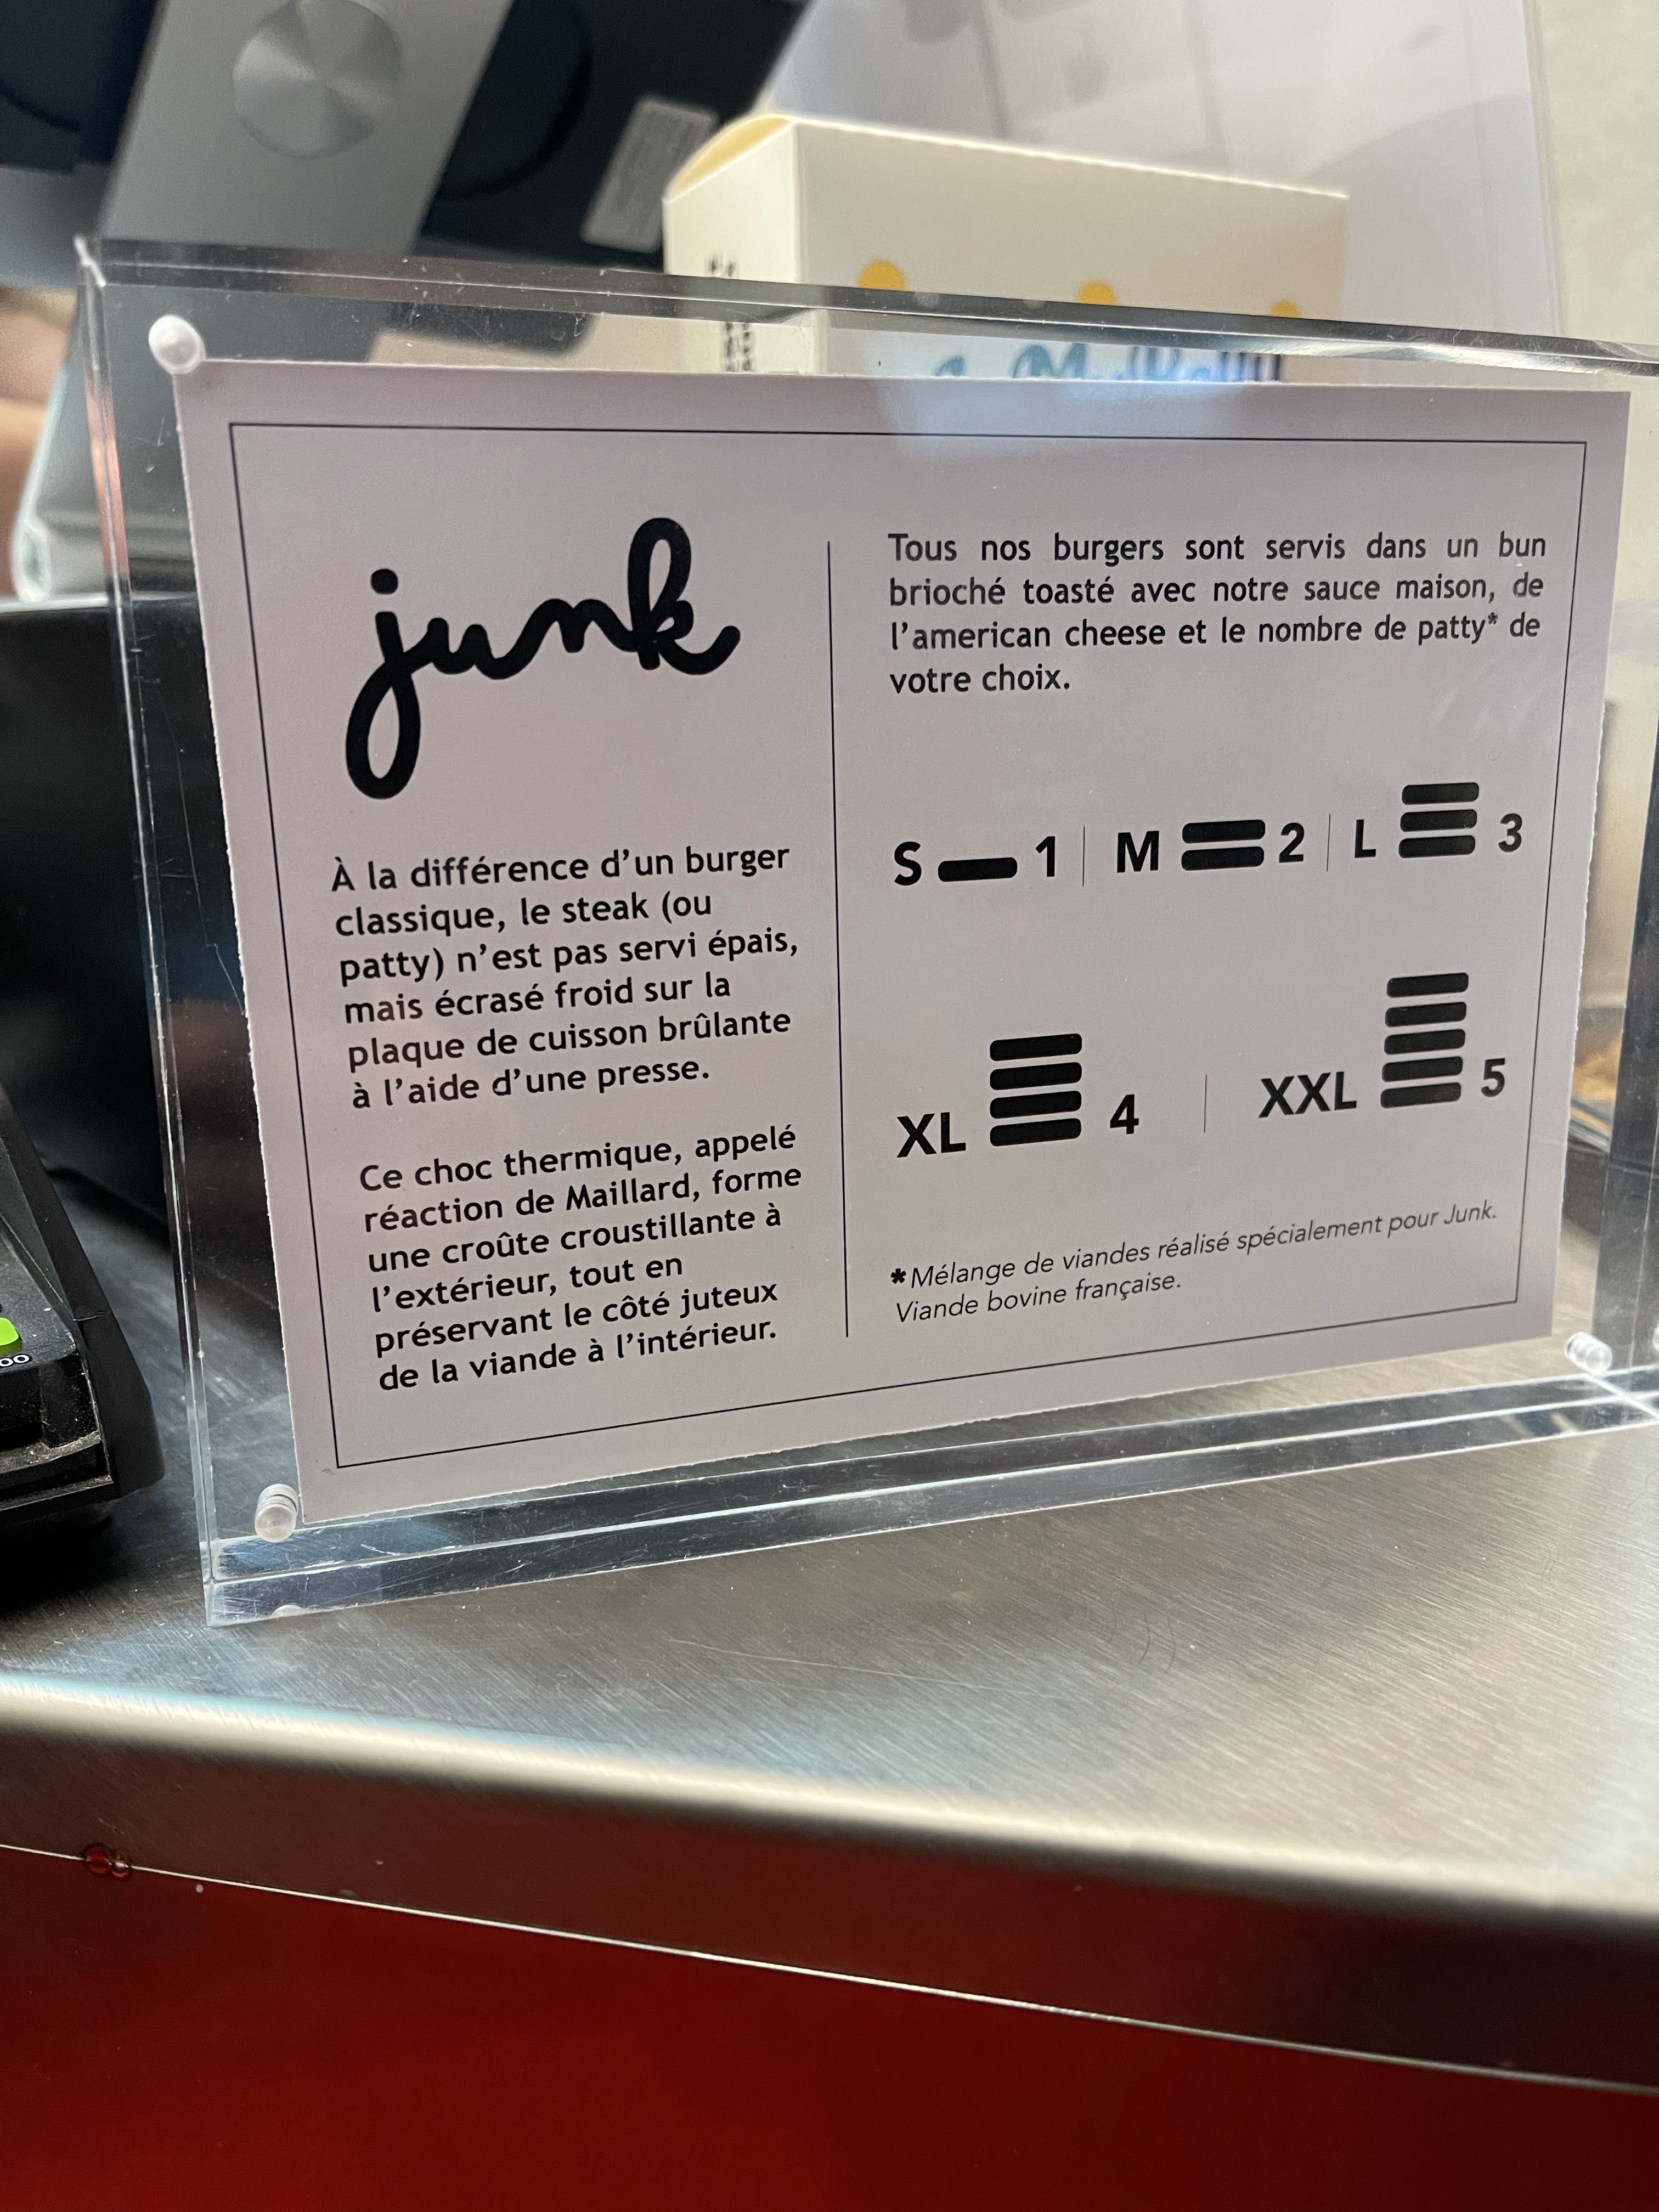 junk
À la différence d'un burger
classique, le steak (ou
patty) n'est pas servi épais,
mais écrasé froid sur la
plaque de cuisson brûlante
à l'aide d'une presse.
Ce choc thermique, appelé
réaction de Maillard, forme
une croûte croustillante à
l'extérieur, tout en
préservant le côté juteux
de la viande à l'intérieur.
Tous nos burgers sont servis dans un bun
brioché toasté avec notre sauce maison, de
l'american cheese et le nombre de patty* de
votre choix.
S 1 | M 2 | L 3
XL 4 | XXL 5
*Mélange de viandes réalisé spécialement pour Junk.
Viande bovine française.